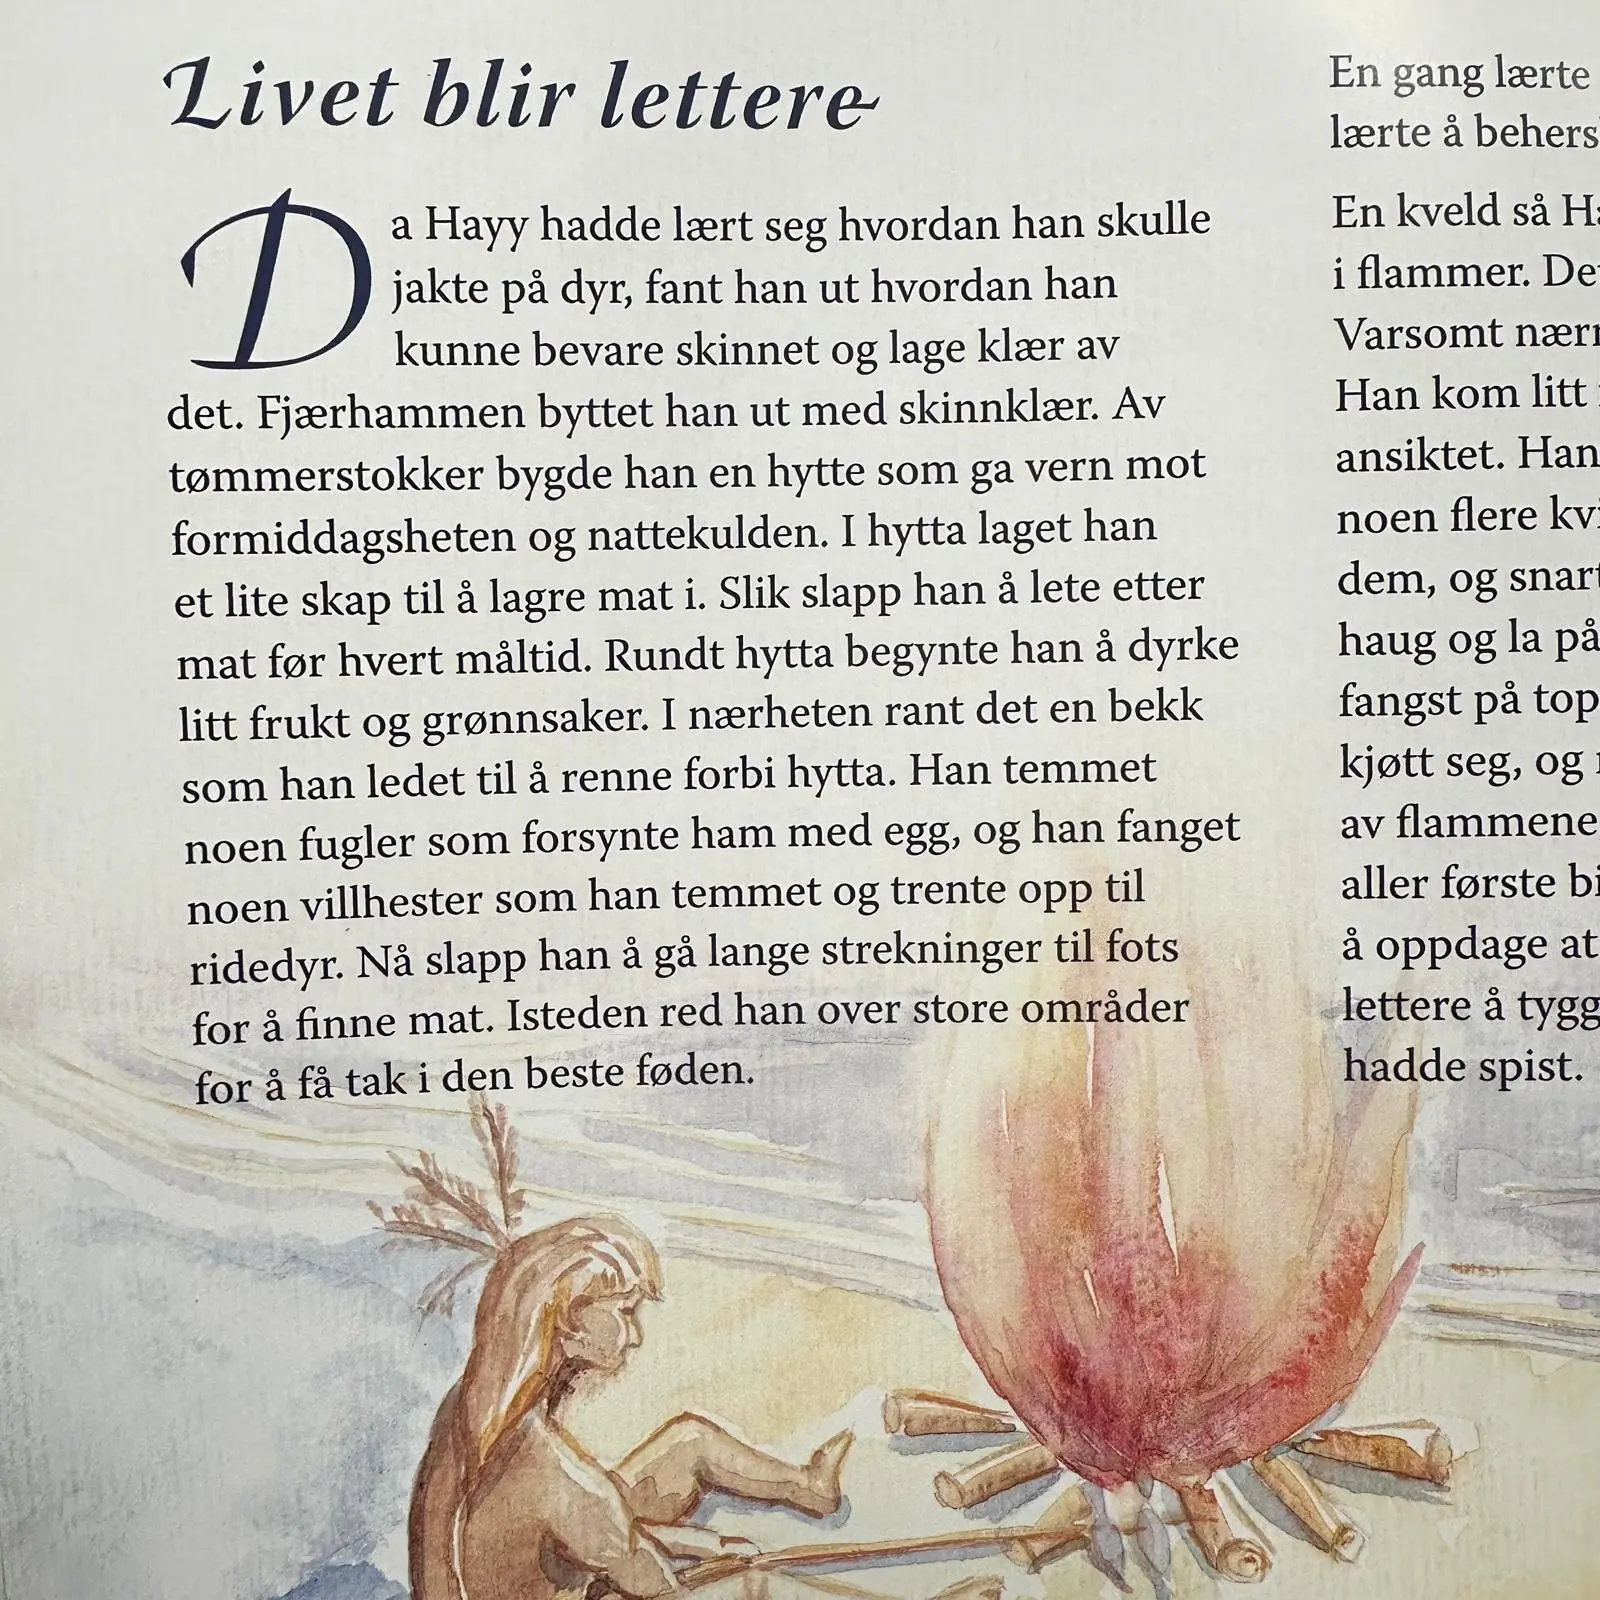 Livet blir lettere
Da Hayy hadde lært seg hvordan han skulle
jakte på dyr, fant han ut hvordan han
kunne bevare skinnet og lage klær av
det. Fjærhammen byttet han ut med skinnklær. Av
tømmerstokker bygde han en hytte som ga vern mot
formiddagsheten og nattekulden. I hytta laget han
et lite skap til å lagre mat i. Slik slapp han å lete etter
mat før hvert måltid. Rundt hytta begynte han å dyrke
litt frukt og grønnsaker. I nærheten rant det en bekk
som han ledet til å renne forbi hytta. Han temmet
noen fugler som forsynte ham med egg, og han fanget
noen villhester som han temmet og trente opp til
ridedyr. Nå slapp han å gå lange strekninger til fots
for å finne mat. Isteden red han over store områder
for å få tak i den beste føden.
En gang lærte
lærte å
En kveld så
i flammer.
Varsomt
Han kom litt
ansiktet. Han
noen flere
dem, og
haug og la på
fangst på
kjøtt seg, og
av flammene
aller første
å oppdage at
lettere å
hadde spist.